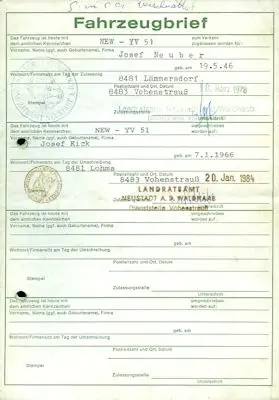 Fahrzeugbrief
Das Fahrzeug ist heute mit
dem amtlichen Kennzeichen
NEW - YV 51
zum Verkehr
zugelassen worden für:
Vorname, Name (ggf. auch Geburtsname), Firma
Josef Neuber
geb. am 19.5.46
Wohnort/Firmensitz am Tag der Zulassung
8481 Lämmersdorf
Postleitzahl und Ort, Datum
8483 Vohenstrauß
März 1978
Stempel
Das Fahrzeug ist heute mit
dem amtlichen Kennzeichen
NEW - YV 51
umgeschrieben
worden für:
Vorname, Name (ggf. auch Geburtsname), Firma
Josef Kick
geb. am 7.1.1966
Wohnort/Firmensitz am Tag der Umschreibung
8481 Lohma
Postleitzahl und Ort, Datum
8483 Vohenstrauß 20. Jan. 1984
LANDRATSAMT
NEUSTADT A. D. WALDNAAB
Dienststelle Vohenstrauß
Das Fahrzeug ist heute mit
dem amtlichen Kennzeichen
umgeschrieben
worden für:
Vorname, Name (ggf. auch Geburtsname), Firma
geb. am
Wohnort/Firmensitz am Tag der Umschreibung
Postleitzahl und Ort, Datum
Stempel
Zulassungsstelle
Unterschrift
Das Fahrzeug ist heute mit
dem amtlichen Kennzeichen
umgeschrieben
worden für:
Vorname, Name (ggf. auch Geburtsname), Firma
geb. am
Wohnort/Firmensitz am Tag der Umschreibung
Postleitzahl und Ort, Datum
Stempel
Zulassungsstelle
Unterschrift